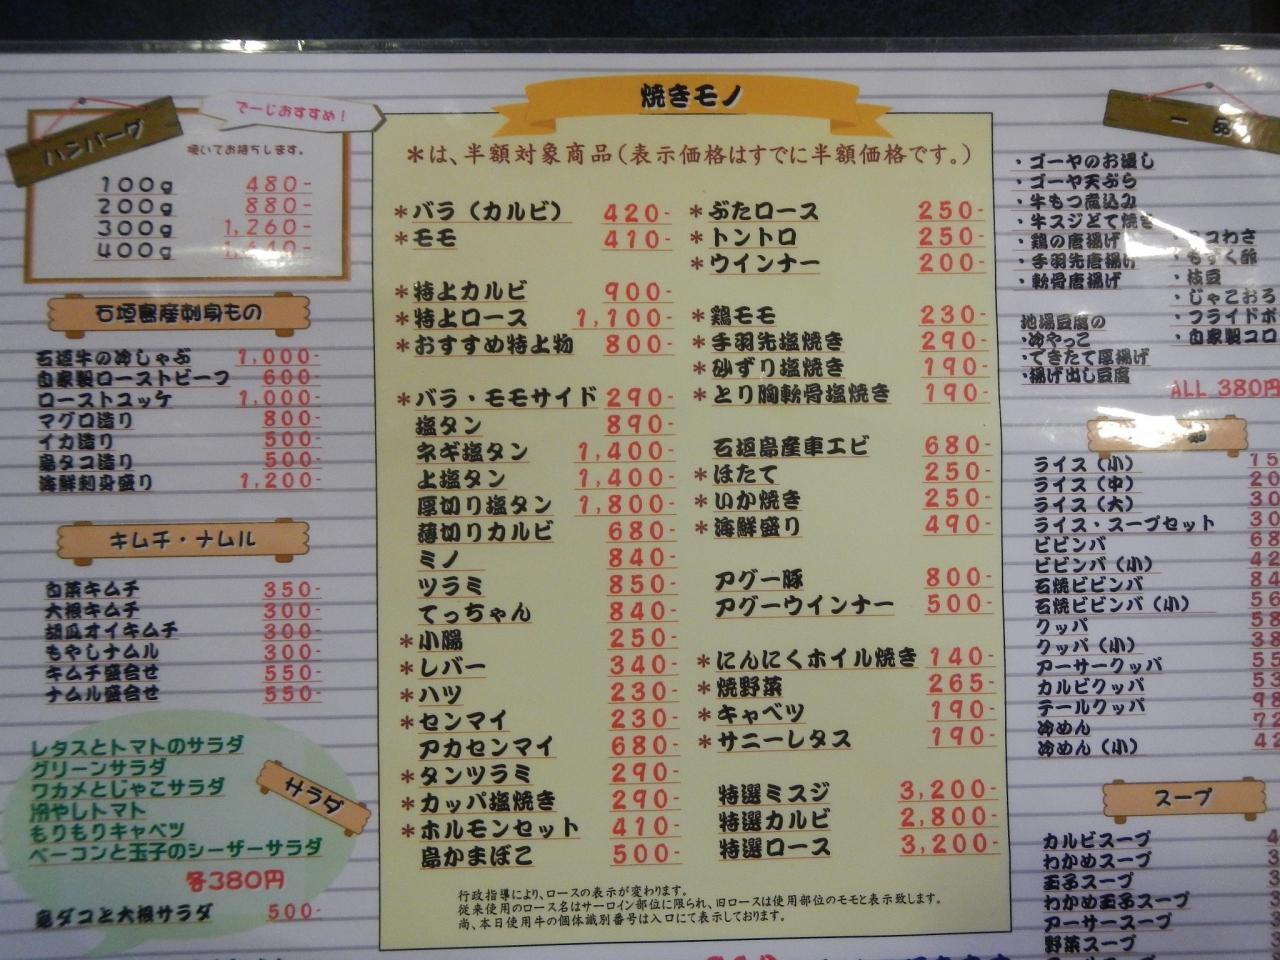 ハンバーグ
でーじおすすめ!
焼いてお持ちします。
100g 480-
200g 880-
300g 1,260-
400g
石垣島産刺身もの
石垣牛の冷しゃぶ 1,000-
自家製ローストビーフ 600-
ローストユッケ 1,000-
マグロ造り 800-
イカ造り 500-
島タコ造り 500-
海鮮刺身盛り 1,200-
キムチ・ナムル
白菜キムチ 350-
大根キムチ 300-
胡瓜オイキムチ 300-
もやしナムル 300-
キムチ盛合せ 550-
ナムル盛合せ 550-
サラダ
レタスとトマトのサラダ
グリーンサラダ
ワカメとじゃこサラダ
冷やしトマト
もりもりキャベツ
ベーコンと玉子のシーザーサラダ
各380円
島ダコと大根サラダ 500-
焼きモノ
*は、半額対象商品(表示価格はすでに半額価格です。)
*バラ(カルビ) 420-
*モモ 410-
*特上カルビ 900-
*特上ロース 1,100-
*おすすめ特上物 800-
*バラ・モモサイド 290-
塩タン 890-
ネギ塩タン 1,400-
上塩タン 1,400-
厚切り塩タン 1,800-
薄切りカルビ 680-
ミノ 840-
ツラミ 850-
てっちゃん 840-
*小腸 250-
*レバー 340-
*ハツ 230-
*センマイ 230-
アカセンマイ 680-
*タンツラミ 290-
*カッパ塩焼き 290-
*ホルモンセット 410-
島かまぼこ 500-
*ぶたロース 250-
*トントロ 250-
*ウインナー 200-
*鶏モモ 230-
*手羽先塩焼き 290-
*砂ずり塩焼き 190-
*とり胸軟骨塩焼き 190-
石垣島産車エビ 680-
*ほたて 250-
*いか焼き 250-
*海鮮盛り 490-
アグー豚 800-
アグーウインナー 500-
*にんにくホイル焼き 140-
*焼野菜 265-
*キャベツ 190-
*サニーレタス 190-
特選ミスジ 3,200-
特選カルビ 2,800-
特選ロース 3,200-
行政指導により、ロースの表示が変わります。
従来使用のロース名はサーロイン部位に限られ、旧ロースは使用部位のモモと表示致します。
尚、本日使用牛の個体識別番号は入口にて表示しております。
一品
・ゴーヤのお浸し
・ゴーヤ天ぷら
・牛もつ煮込み
・牛スジどて焼き
・鶏の唐揚げ
・手羽先唐揚げ
・軟骨唐揚げ
コわさ
・もずく酢
・枝豆
・じゃこおろ
・フライドポ
・自家製コロ
地場豆腐の
・冷やっこ
・できたて厚揚げ
・揚げ出し豆腐
ALL 380円
ライス(小) 15
ライス(中) 20
ライス(大) 30
ライス・スープセット 30
ビビンバ 68
ビビンバ(小) 42
石焼ビビンバ 84
石焼ビビンバ(小) 56
クッパ 58
クッパ(小) 38
アーサークッパ 55
カルビクッパ 53
テールクッパ 98
冷めん 72
冷めん(小) 42
スープ
カルビスープ 4
わかめスープ 3
玉子スープ 3
わかめ玉子スープ
アーサースープ
野菜スープ